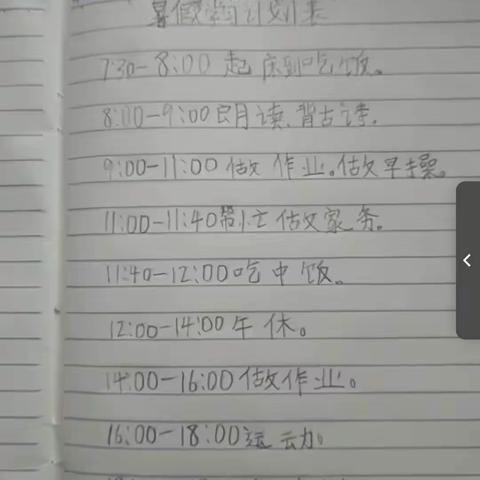 暑假学习计划表
7:30-8:00 起床到吃饭。
8:00-9:00 朗读、背古诗。
9:00-11:00 做作业。做早操。
11:00-11:40 帮忙做家务。
11:40-12:00 吃中饭。
12:00-14:00 午休。
14:00-16:00 做作业。
16:00-18:00 运动。